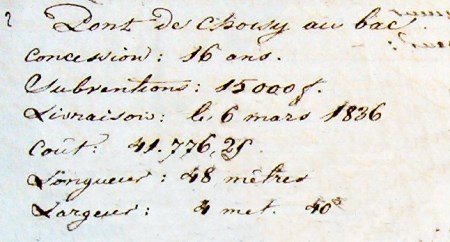 Pont de Choisy au bac.
Concession: 16 ans.
Subventions: 15000 f.
Livraison: le 6 mars 1836
Coût: 41.776,25
Longueur: 48 mètres
Largeur: 4 met. 40